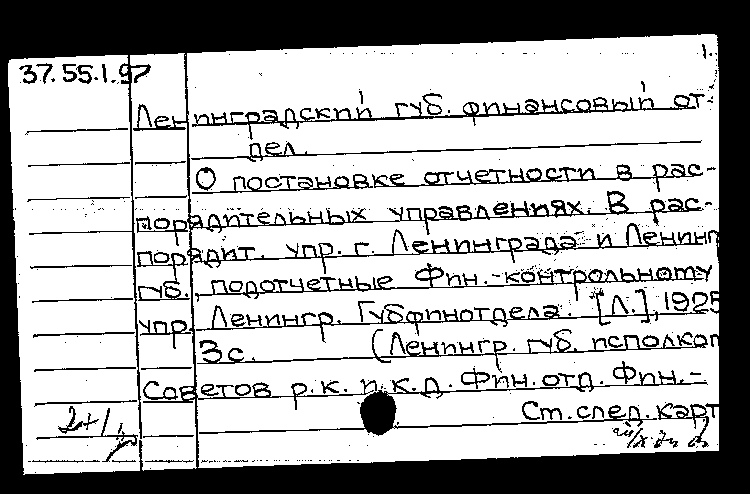 1.
37.55.1.97
Ленинградский губ. финансовый от-
дел.
О постановке отчетности в рас-
порядительных управлениях. В рас-
порядит. упр. г. Ленинграда и Ленингр
губ., подотчетные Фин.-контрольному
упр. Ленингр. Губфинотдела. [Л.], 1925
3с. (Ленингр. губ. исполком
Советов р.к. и к.д. Фин. отд. Фин.-
Ст. след. карт
2+1